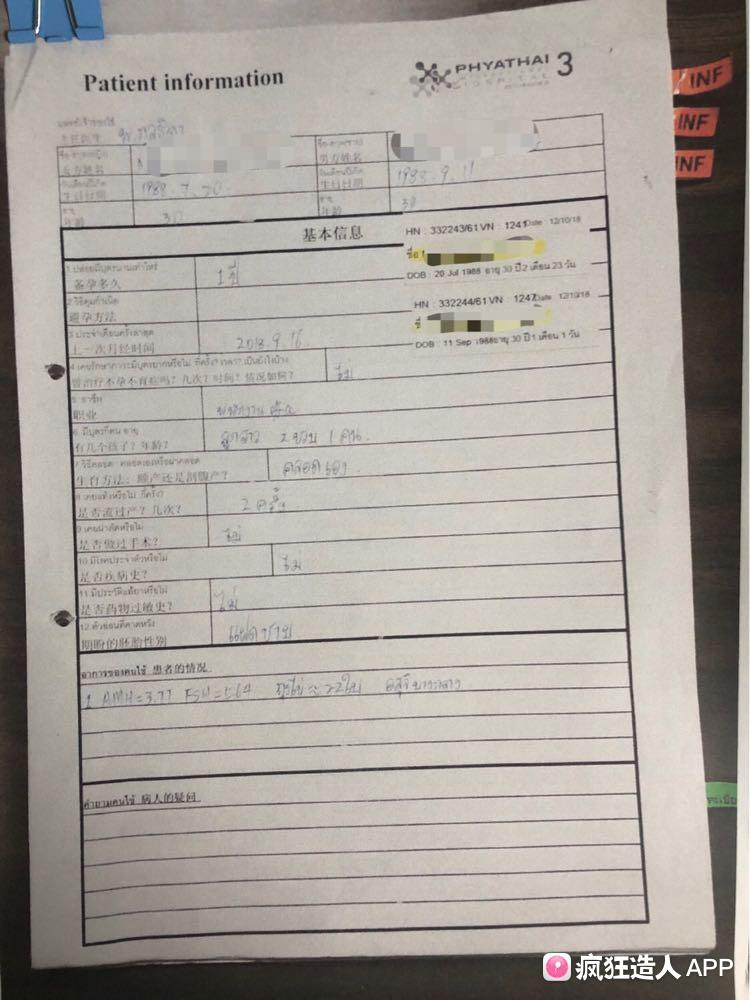 Patient information
PHYATHAI 3
HOSPITAL
INF
INF
INF
แพทย์เจ้าของไข้
主任医生
女方姓名
男方姓名
วันเดือนปีเกิด
生日日期 1988.7.20
วันเดือนปีเกิด
生日日期 1988.9.11
อายุ
年龄 30
อายุ
年龄 30
基本信息
HN : 332243/61 VN : 1241 Date : 12/10/18
DOB : 20 Jul 1988 อายุ 30 ปี 2 เดือน 23 วัน
HN : 332244/61 VN : 1247 Date : 12/10/18
DOB : 11 Sep 1988 อายุ 30 ปี 1 เดือน 1 วัน
1 ปล่อยมีบุตรนานเท่าไหร่
备孕多久 1 ปี
2 วิธีคุมกำเนิด
避孕方法
3 ประจำเดือนครั้งล่าสุด
上一次月经时间 2018.9.16
曾治疗不孕不育症吗？几次？时间？情况如何？ ไม่
5 อาชีพ
职业 พนักงาน
6 มีบุตรกี่คน อายุ
有几个孩子？年龄？ ลูกสาว 2 ขวบ 1 คน
7 วิธีคลอด คลอดเองหรือผ่าคลอด
生育方法：顺产还是剖腹产？ คลอดเอง
8 เคยแท้งหรือไม่ กี่ครั้ง?
是否流过产？几次？ 2 ครั้ง
9 เคยผ่าตัดหรือไม่
是否做过手术？ ไม่
10 มีโรคประจำตัวหรือไม่
是否疾病史？ ไม่
11 มีประวัติแพ้ยาหรือไม่
是否药物过敏史？ ไม่
12 ตัวอ่อนที่คาดหวัง
期盼的胚胎性别 แฝดชาย
อาการของคนไข้ 患者的情况
1 AMH=3.77 FSH=5.64
คำถามคนไข้ 病人的疑问
疯狂造人 APP